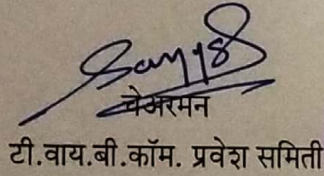 चेअरमन
टी.वाय.बी.कॉम. प्रवेश समिती